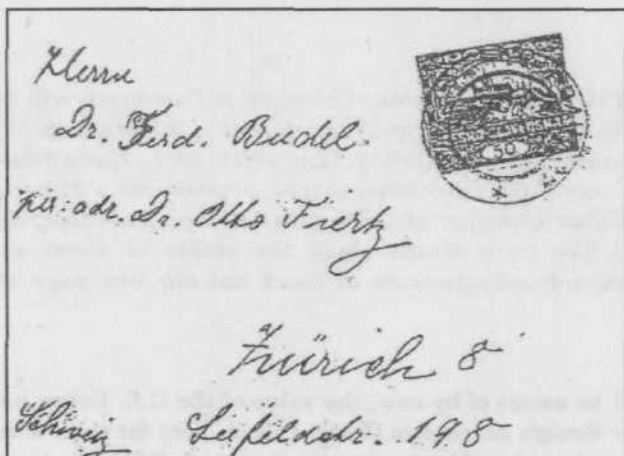 Herrn
Dr. Ferd. Budel
per. adr. Dr. Otto Fiertz
Zürich 8
Schweiz Seefeldstr. 198
50